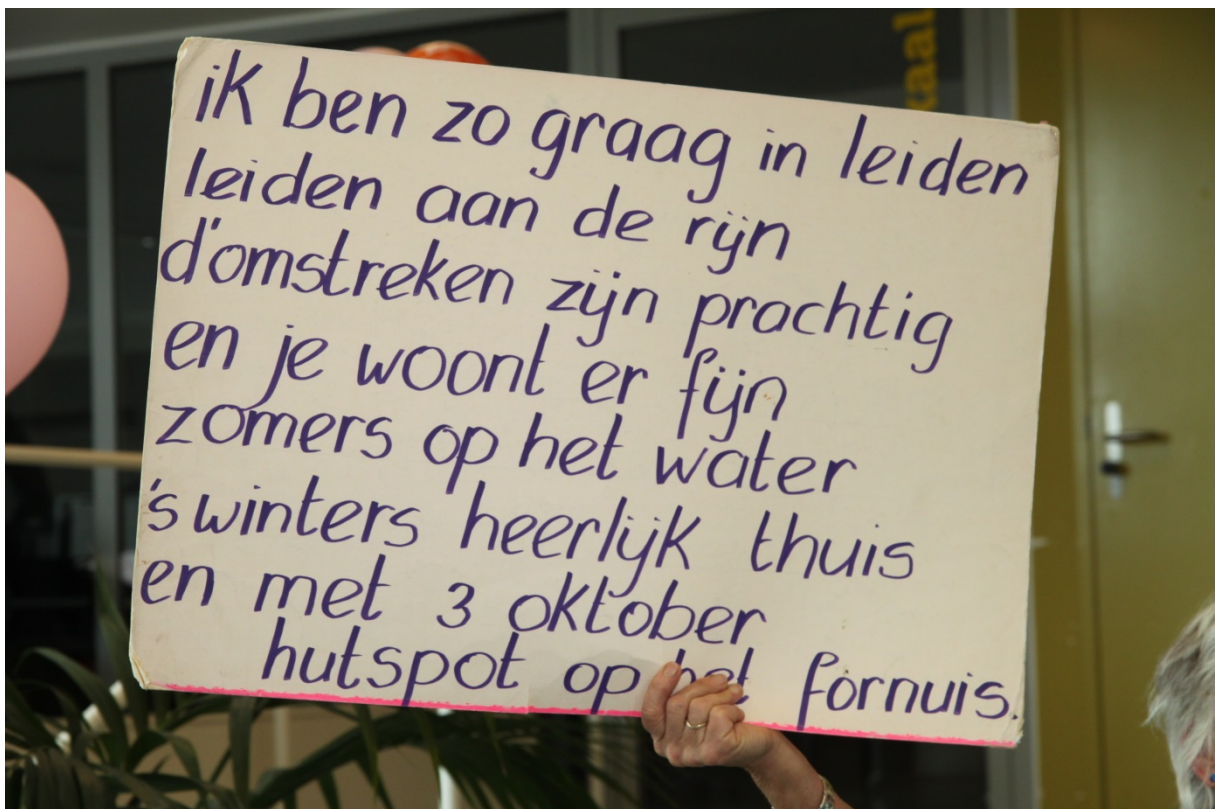 ik ben zo graag in leiden
leiden aan de rijn
d'omstreken zijn prachtig
en je woont er fijn
zomers op het water
's winters heerlijk thuis
en met 3 oktober
hutspot op het fornuis.
kaal